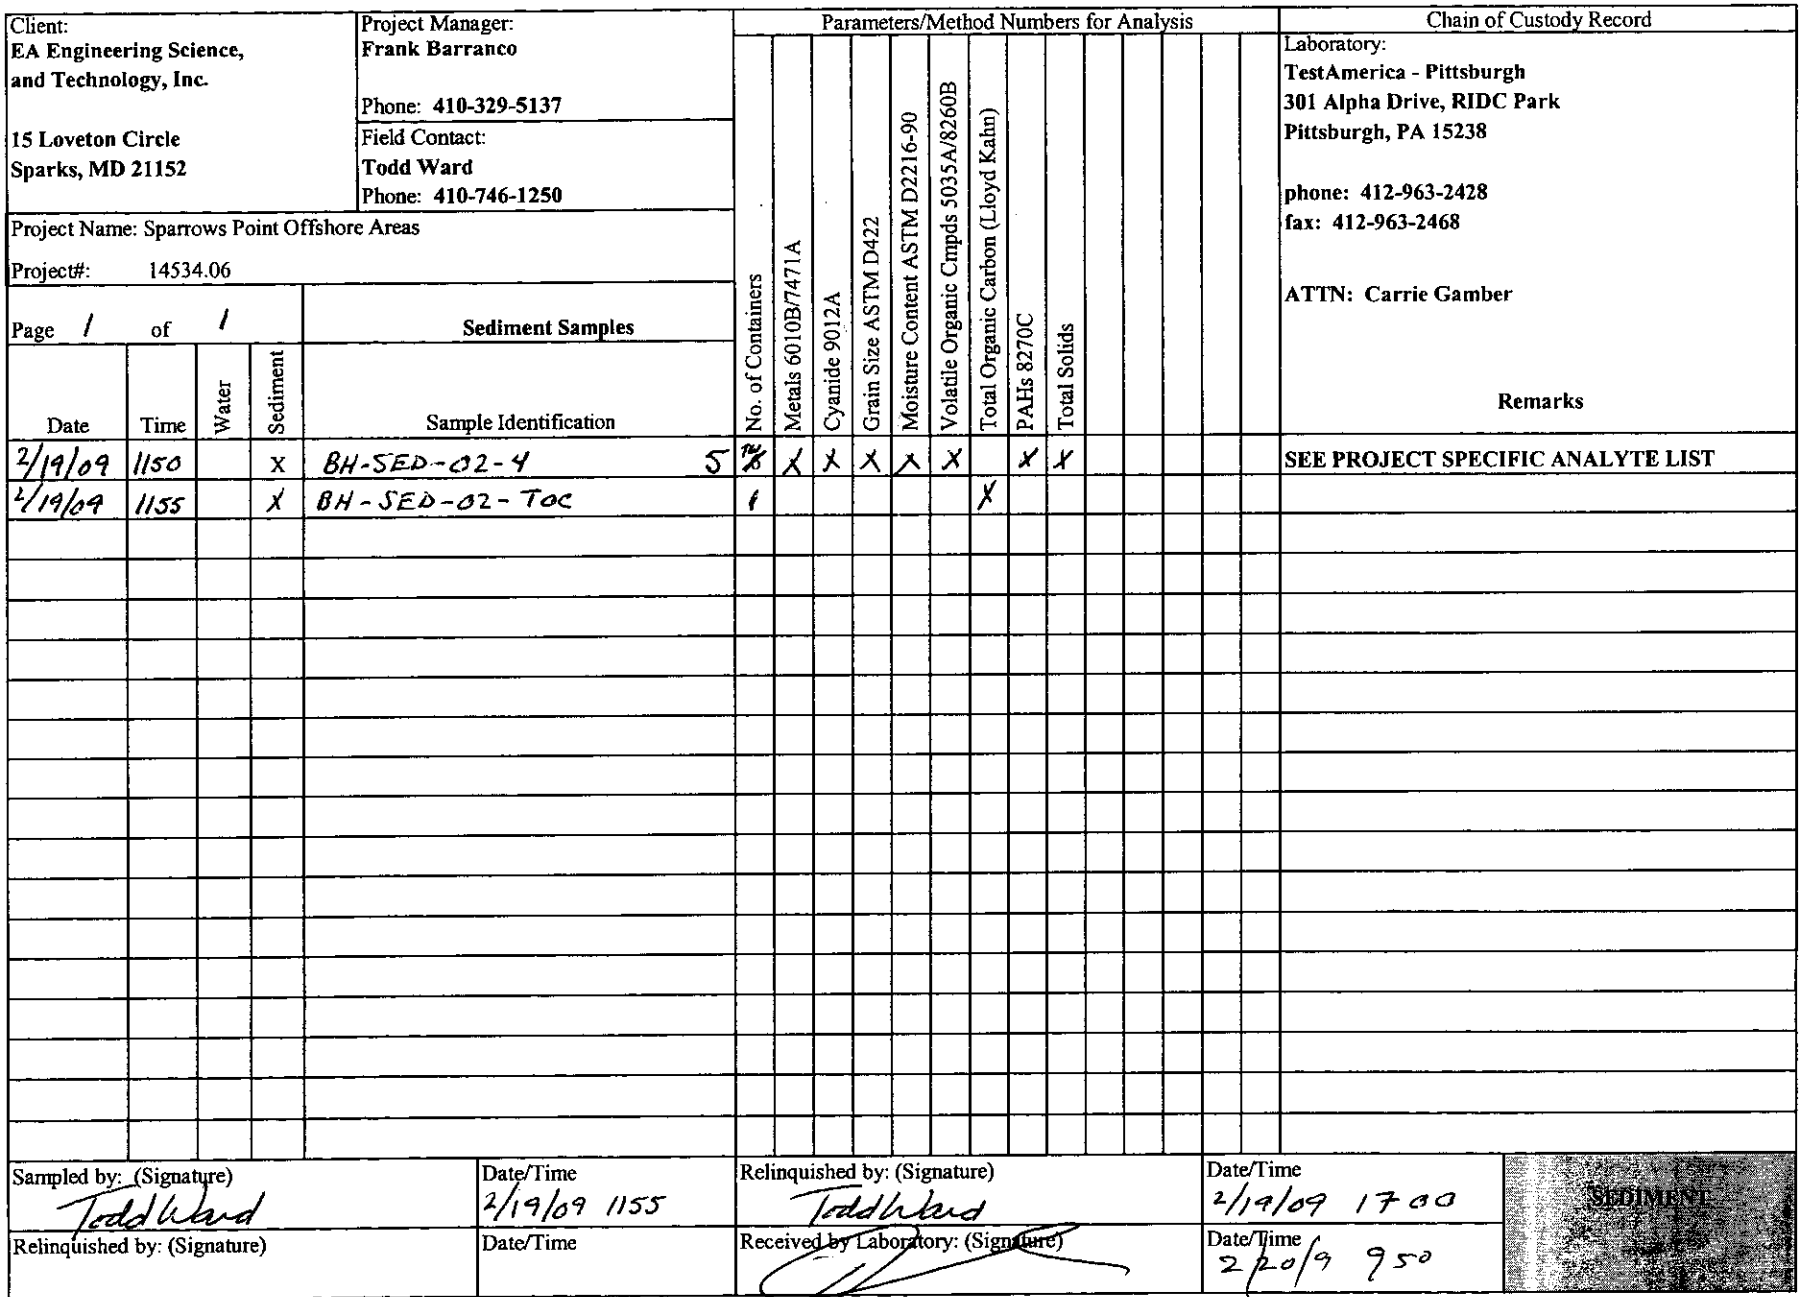 Client:
EA Engineering Science,
and Technology, Inc.
15 Loveton Circle
Sparks, MD 21152
Project Manager:
Frank Barranco
Phone: 410-329-5137
Field Contact:
Todd Ward
Phone: 410-746-1250
Project Name: Sparrows Point Offshore Areas
Project#: 14534.06
Page 1 of 1
Sediment Samples
Parameters/Method Numbers for Analysis
Chain of Custody Record
Laboratory:
TestAmerica - Pittsburgh
301 Alpha Drive, RIDC Park
Pittsburgh, PA 15238
phone: 412-963-2428
fax: 412-963-2468
ATTN: Carrie Gamber
Remarks
Date
Time
Water
Sediment
Sample Identification
No. of Containers
Metals 6010B/7471A
Cyanide 9012A
Grain Size ASTM D422
Moisture Content ASTM D2216-90
Volatile Organic Cmpds 5035A/8260B
Total Organic Carbon (Lloyd Kahn)
PAHs 8270C
Total Solids
2/19/09 1150 X BH-SED-02-4 5 X X X X X X X SEE PROJECT SPECIFIC ANALYTE LIST
2/19/09 1155 X BH-SED-02-TOC 1 X
Sampled by: (Signature)
Todd Ward
Date/Time
2/19/09 1155
Relinquished by: (Signature)
Todd Ward
Date/Time
2/19/09 1700
SEDIMENT
Relinquished by: (Signature)
Date/Time
Received by Laboratory: (Signature)
Date/Time
2/20/9 950